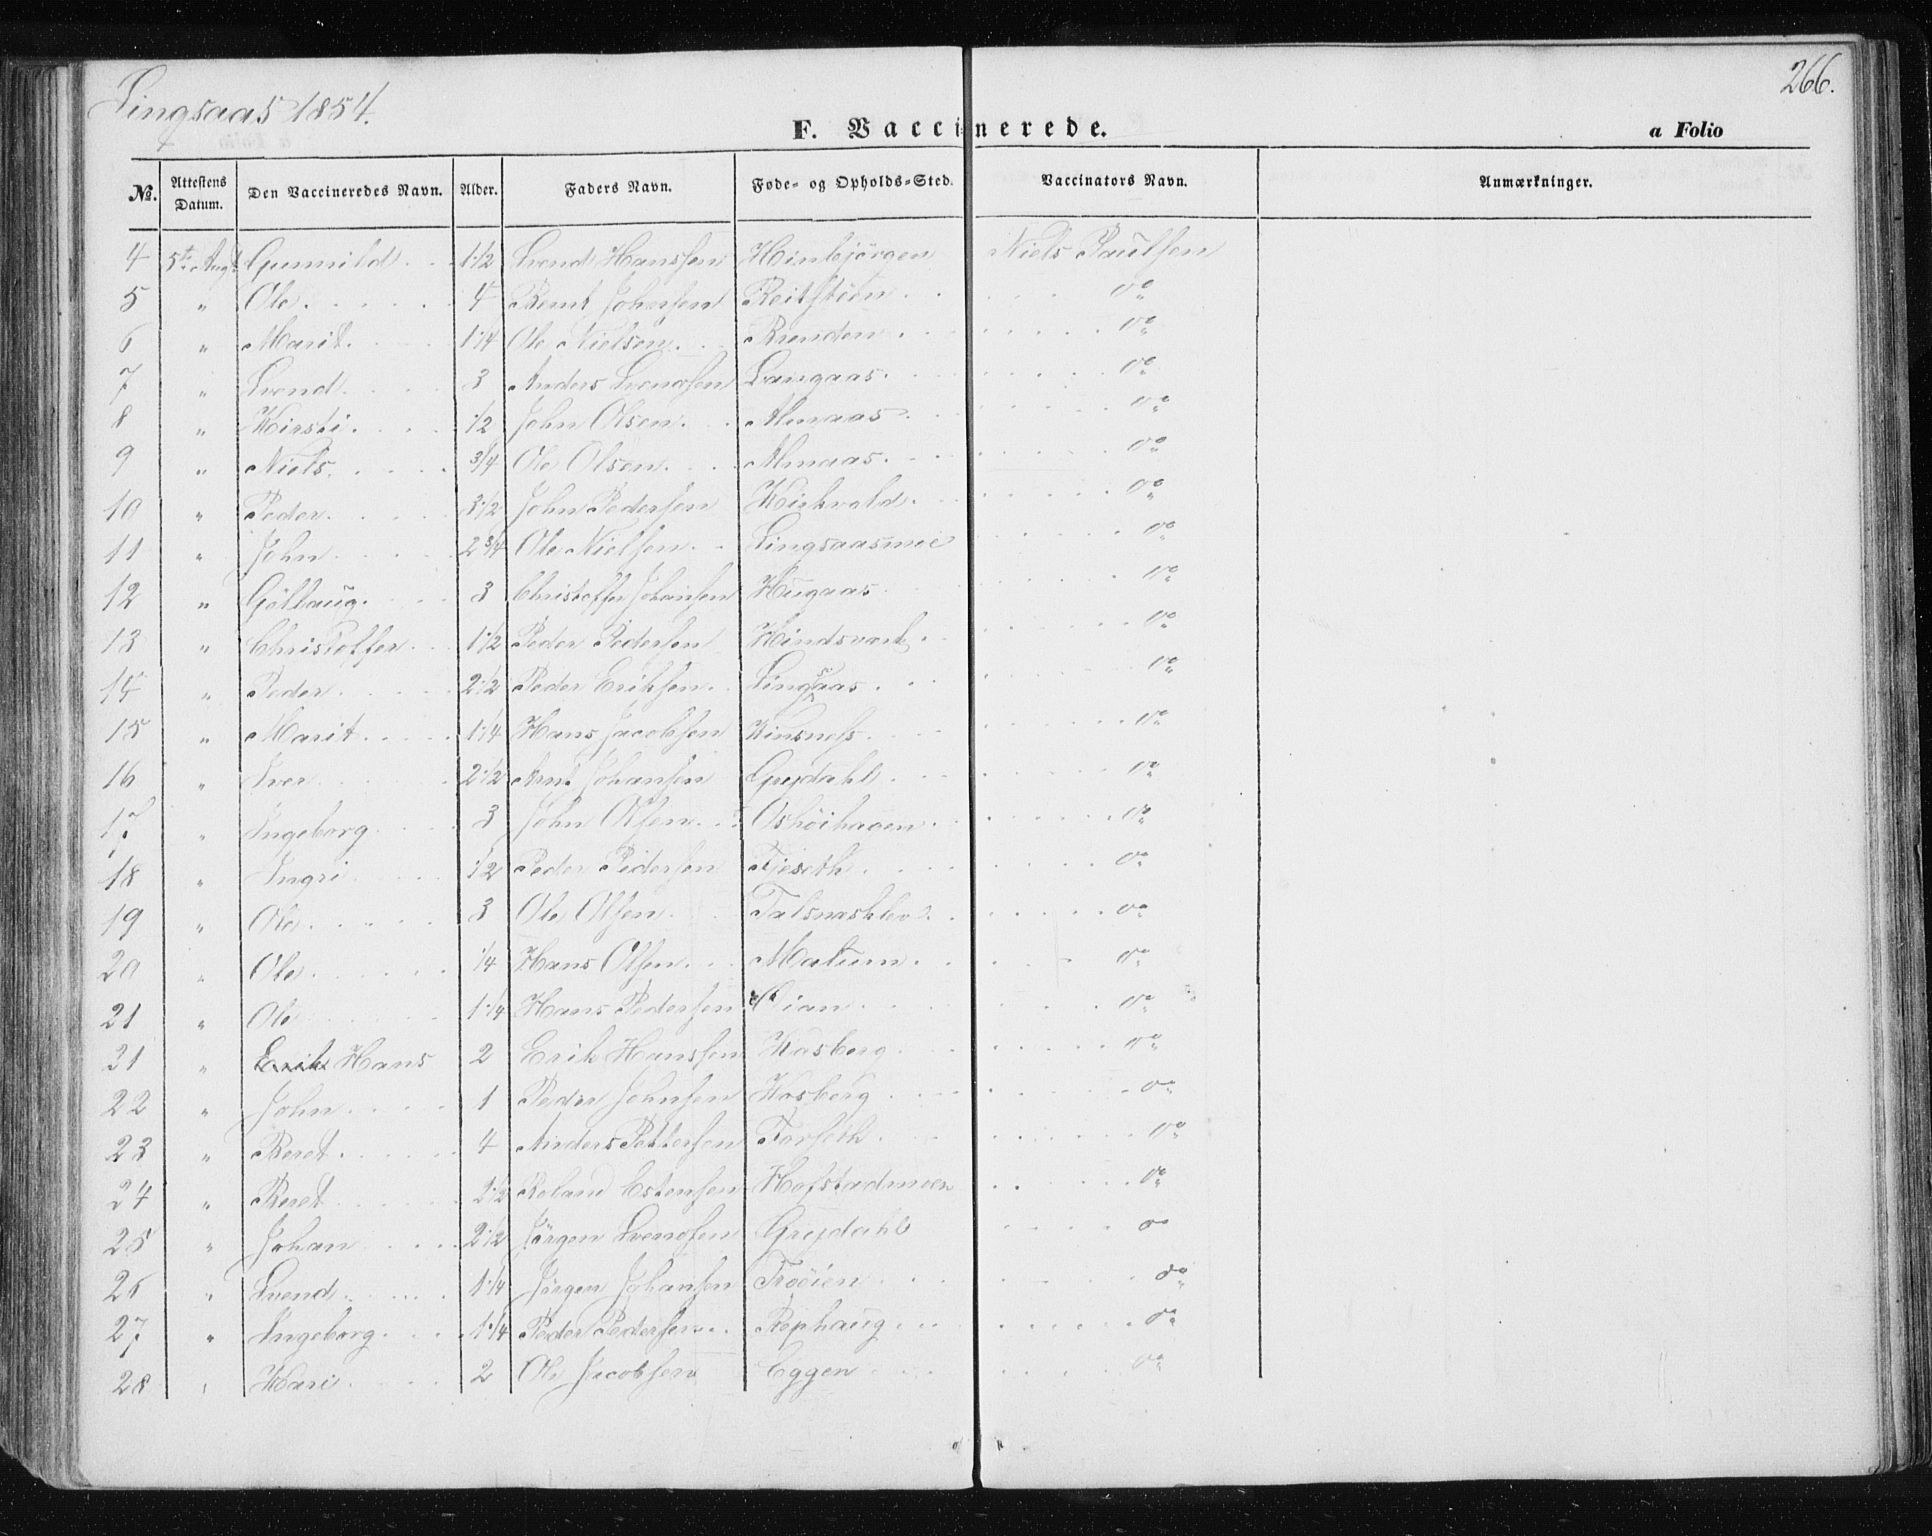 Singsaas 1854.
266.
F. Vaccinerede.
a Folio
No. Attestens Datum. Den Vaccineredes Navn. Alder. Faders Navn. Føde- og Opholds-Sted. Vaccinators Navn. Anmærkninger.
4 5te Augt Gunnild 1 1/2 Svend Hanssen Hinbjørgen Niels Paulsen
5 " Ole 4 Bernt Johnsen Reitstøen do
6 " Marit 1 1/4 Ole Nielsen Brenden do
7 " Svend 3 Anders Svendsen Langaas do
8 " Kirsti 1/2 John Olsen Almaas do
9 " Niels 3/4 Ole Olsen Almaas do
10 " Peder 3 1/2 John Pedersen Kirkvold do
11 " John 2 3/4 Ole Nielsen Singsaasmoe do
12 " Gollaug 3 Christoffer Johansen Haugaas do
13 " Christoffer 1 1/2 Peder Pedersen do
14 " Peder 2 1/2 Peder Eriksen Singsaas do
15 " Marit 1 1/4 Hans Jacobsen Kinsnes do
16 " Iver 2 1/2 Arnt Johansen Grejdahl do
17 " Ingeborg 3 John Olsen Oshøihagen do
18 " Ingri 1/2 Peder Pedersen Fjeseth do
19 " Ole 3 Ole Olsen Talsnesklev do
20 " Ole 1/4 Hans Olsen Malum do
21 " Ole 1 1/4 Hans Pedersen do
31 " Erik Hans 2 Erik Hanssen Kosberg do
22 " John 1 Peder Johnsen Kosberg do
23 " Beret 4 Anders Pettersen Forseth do
24 " Beret 2 1/2 Roland Estensen Hofstadmoen do
25 " Johan 2 1/2 Jørgen Svendsen Grejdahl do
26 " Svend 1 1/4 Jørgen Johansen Trøeien do
27 " Ingeborg 1 1/4 Peder Pedersen Rephaug do
28 " Kari 2 Ole Jacobsen Eggen do